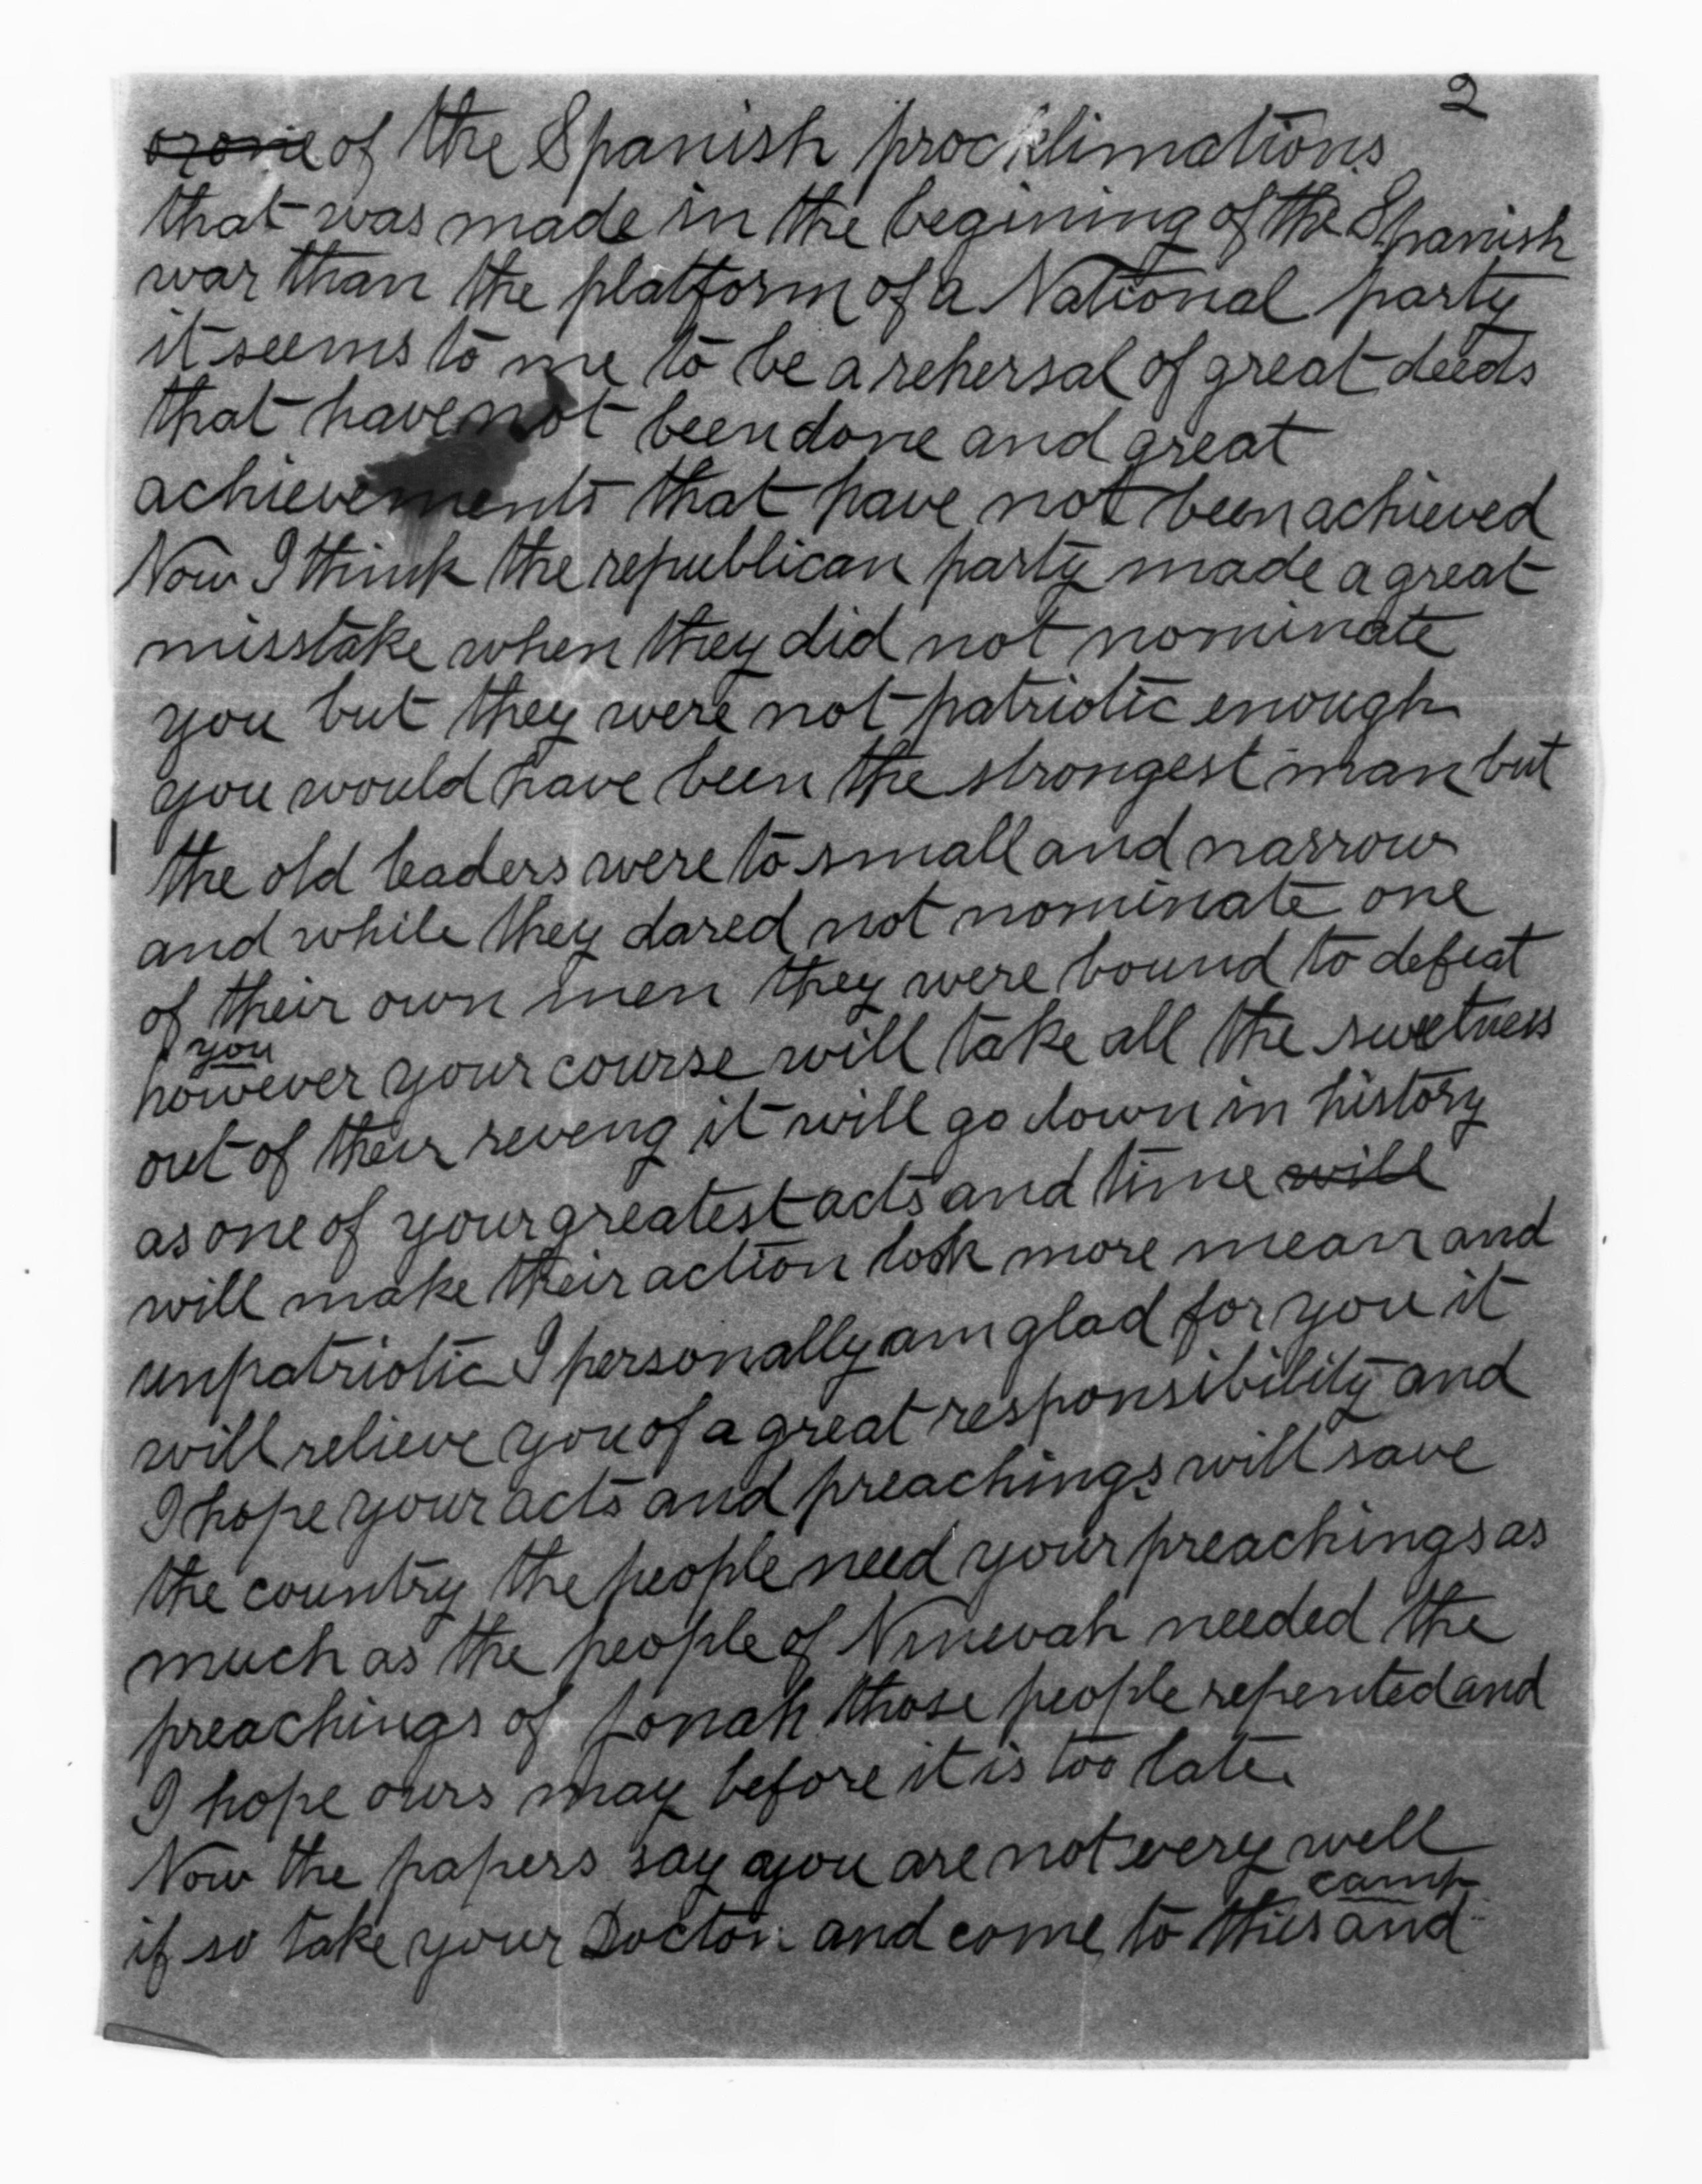 2
of the Spanish procklimations
that was made in the begining of the Spanish
war than the platform of a National party
it seems to me to be a rehersal of great deeds
that have not been done and great
achievements that have not been achieved
Now I think the republican party made a great
misstake when they did not nominate
you but they were not patriotic enough
you would have been the strongest man but
the old leaders were to small and narrow
and while they dared not nominate one
of their own men they were bound to defeat
you
however your course will take all the sweetness
out of their reveng it will go down in history
as one of your greatest acts and time will
will make their action look more mean and
unpatriotic I personally am glad for you it
will relieve you of a great responsibility and
I hope your acts and preachings will save
the country the people need your preachings as
much as the people of Ninevah needed the
preachings of Jonah those people repented and
I hope ours may before it is too late.
Now the papers say you are not very well
camp
if so take your Doctor and come to this and